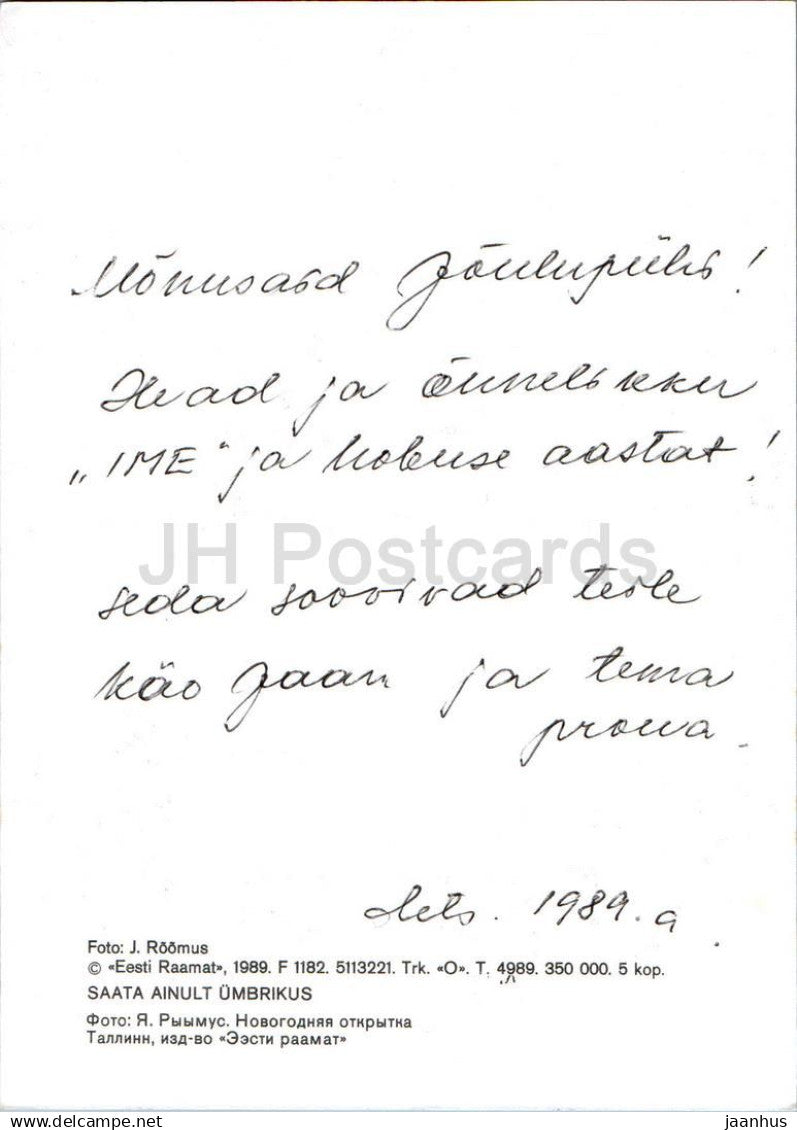 Mõnusaid Jõulupühi!
Head ja õnnelikku
„IME“ ja hobuse aastat!
JH Postcards
seda soovivad teile
Käo Jaan ja tema
proua.
1989. a.
Foto: J. Rõõmus
© «Eesti Raamat», 1989. F 1182. 5113221. Trk. «O». T. 4989. 350 000. 5 kop.
SAATA AINULT ÜMBRIKUS
Фото: Я. Рыымус. Новогодняя открытка
Таллинн, изд-во «Ээсти раамат»
www.delcampe.net
jaanhus